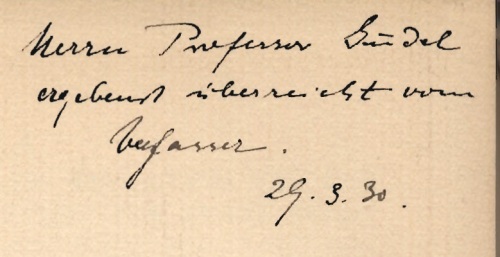 Herrn Professor
ergebenst überreicht vom
Verfasser.
29. 3. 30.